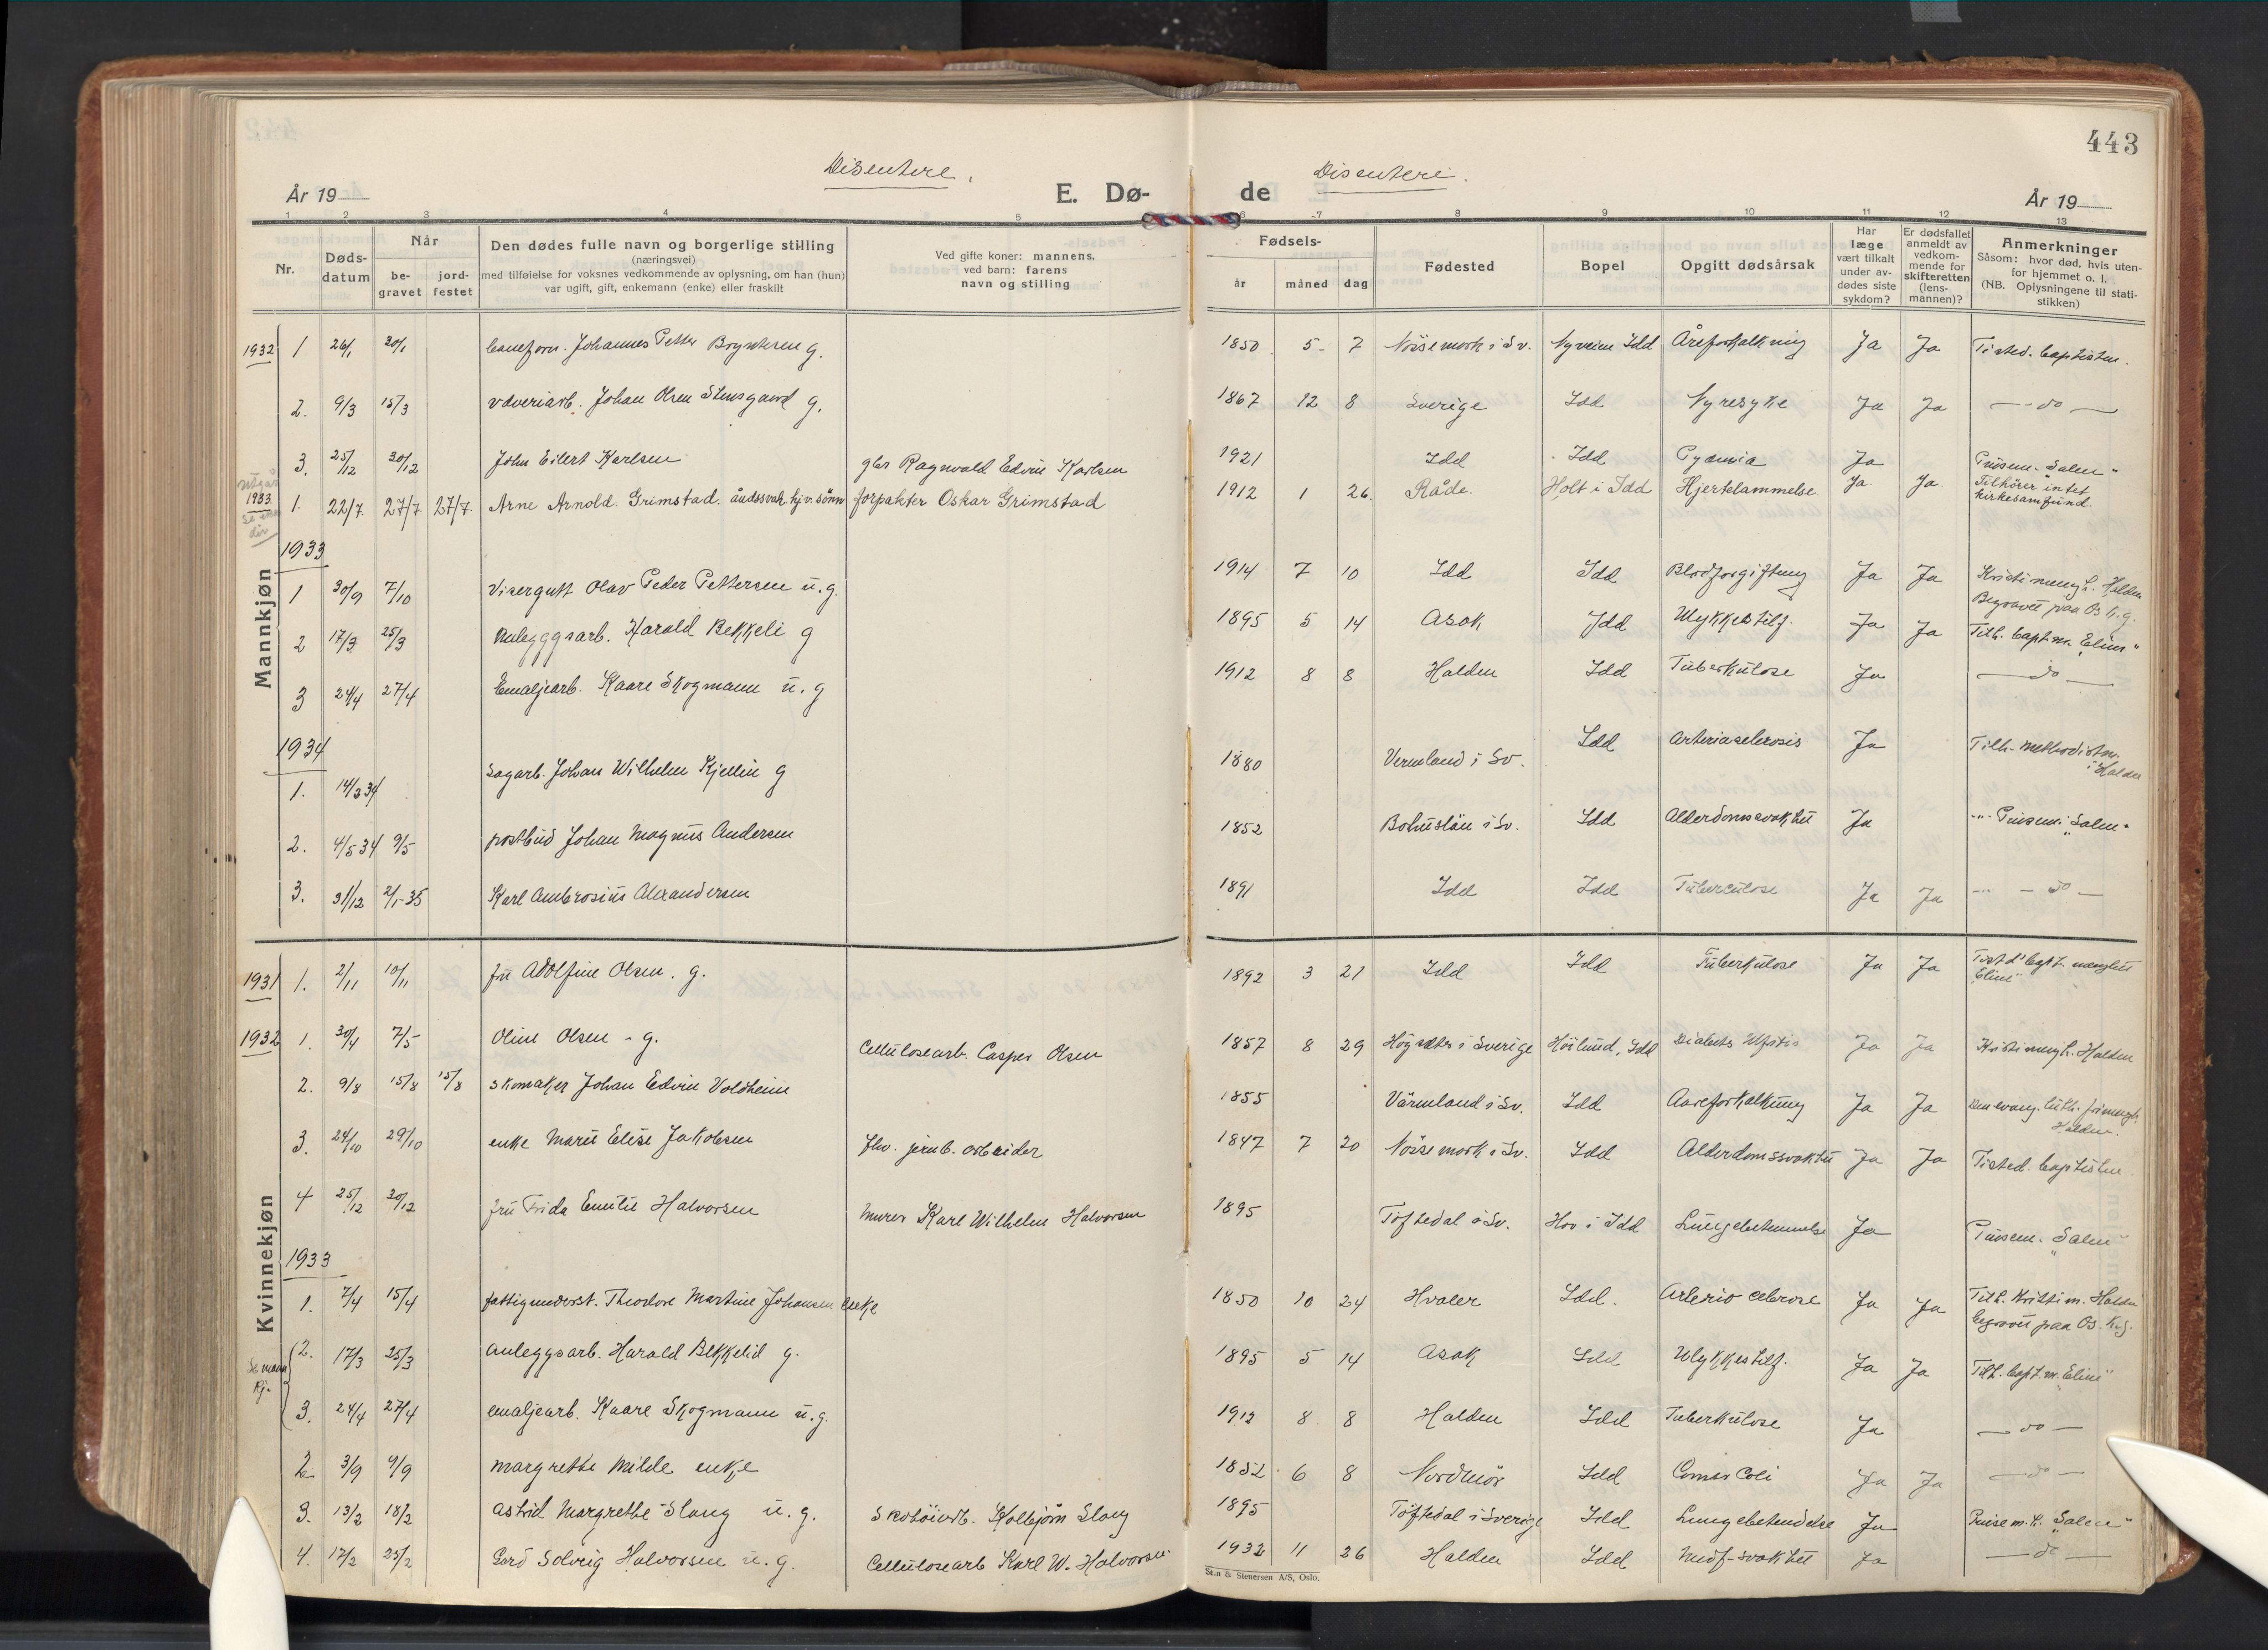 443
Disentere.
Disentere.
År 19
E. Dø-
de
År 19
1 2 3 4 5 6 7 8 9 10 11 12 13
Nr.
Døds-datum
Når
be-gravet
jord-festet
Den dødes fulle navn og borgerlige stilling
(næringsvei)
med tilføielse for voksnes vedkommende av oplysning, om han (hun)
var ugift, gift, enkemann (enke) eller fraskilt
Ved gifte koner: mannens,
ved barn: farens
navn og stilling
Fødsels-
år
måned
dag
Fødested
Bopel
Opgitt dødsårsak
Har læge vært tilkalt under av-dødes siste sykdom?
Er dødsfallet anmeldt av vedkom-mende for skifteretten (lens-mannen)?
Anmerkninger
Såsom: hvor død, hvis uten-
for hjemmet o. l.
(NB. Oplysningene til stati-
stikken)
Mannkjøn
1932 1 26/1 30/1 Johannes Petter Bryntesen g. 1850 5 7 Nössemork i Sv. Nyveien Idd Åreforkalkning Ja Ja Tisted. baptistm.
2. 9/3 15/3 Væveriarb. Johan Olsen Stensgaard g. 1867 12 8 Sverige Idd Nyresyke Ja Ja — do —
3. 25/12 30/12 John Eilert Karlsen gbr Ragnvald Edvin Karlsen 1921 Idd Idd Pyæmia Ja Pinsem. Salem"
1933 1. 22/7 27/7 27/7 Arne Arnold Grimstad åndssvak hj.v. sönn forpakter Oskar Grimstad 1912 1 26. Råde. Holt i Idd Hjertelammelse Ja Ja Tilhörer intet kirkesamfund.
1933
1 30/9 7/10 Visergutt Olav Peder Pettersen u.g. 1914 7 10 Idd Idd Blodforgiftning Ja Ja Kristi mengh. Halden Begravet paa Os k.g.
2 17/3 25/3 Anlegggsarb. Harald Bekkeli g 1895 5 14 Asak Idd Ulykkestilf. Ja Ja Tilh. bapt.m. „Elim"
3 24/4 27/4 Emaljearb. Kaare Skogmann u. g 1912 8 8 Halden Idd Tuberkulose Ja — do —
1934
1. 14/3 34 Sagarb. Johan Wilhelm Kjellin g 1880 Vermland i Sv. Idd Arteriasclerosis Ja Tilh. Methodistm. i Halden
2. 4/5 34 9/5 postbud Johan Magnus Andersen 1852 Bohuslän i Sv. Idd Alderdomssvakhet Ja -"- Pinsem. „Salem"
3. 31/12 2/1-35 Karl Ambrosius Alexandersen 1891 Idd Idd Tuberculose Ja Ja -"- — do —
Kvinnekjøn
1931 1. 2/11 10/11 fru Adolfine Olsen. g. 1892 3 21 Idd Idd Tuberkulose Ja Ja bapt. menghet Elim"
1932 1. 30/4 7/5 Oline Olsen - g. Cellulosearb. Casper Olsen 1857 8 29 Högsäter i Sverige Höilund, Idd Diabetes Ja Ja Kristi mengh. Halden
2. 9/8 15/8 15/8 skomaker Johan Edvin Voldheim 1855 Värmland i Sv. Idd Aareforkalkning Ja Ja Den evang. luth. frimengh. Halden.
3. 24/10 29/10 enke Marie Elise Jakobsen fhv. jernb. arbeider 1847 7 20 Nössemork i Sv. Idd Alderdomssvakhet Ja Ja Tisted. baptistm.
4 25/12 30/12 fru Frida Emilie Halvorsen murer Karl Wilhelm Halvorsen 1895 Töftedal i Sv. Hov i Idd Lungebetennelse Ja Pinsem. „Salem"
1933
1. 7/4 15/4 fattigunderst. Theodore Martine Johansen enke 1850 10 24 Hvaler Idd. Arterio sclerose Ja Ja Tilh. Kristi m. Halden begravet paa Os k.g.
Se mann kj.
2. 17/3 25/3 Anleggsarb. Harald Bekkelid g. 1895 5 14 Asak Idd Ulykkestilf. Ja Ja Tilh. bapt. m. „Elim"
3. 24/4 27/4 emaljearb. Kaare Skogmann u. g. 1912 8 8 Halden Idd Tuberkulose Ja — do —
2 3/9 9/9 Margrethe Milde enke 1852 6 8 Nordmör Idd Cancer Coli Ja Ja — do —
3. 13/2 18/2 Astrid Margrethe Slang u. g. Skotöiarb. Kolbjörn Slang 1895 Töftedal i Sverige Idd Lungebetendelse Ja Pinse m. h. „Salem"
4. 17/2 25/2 Gerd Solveig Halvorsen u. g. Cellulosearb Karl W. Halvorsen. 1932 11 26 Halden Idd Medf. svakhet Ja — do —
& Stenersen A/S, Oslo.